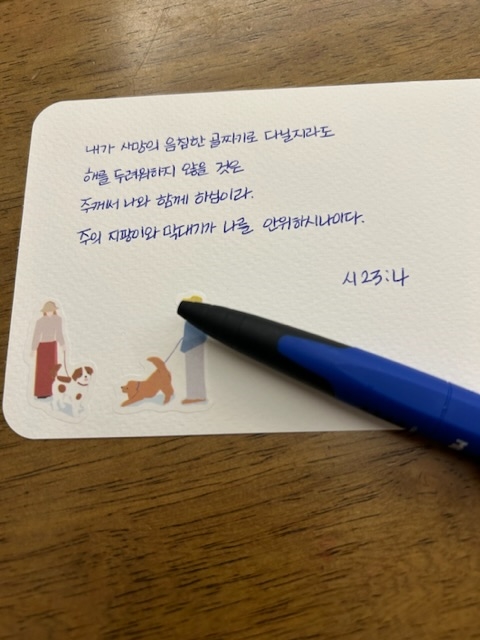 내가 사망의 음침한 골짜기로 다닐지라도
해를 두려워하지 않을 것은
주께서 나와 함께 하심이라.
주의 지팡이와 막대기가 나를 안위하시나이다.
시 23:4